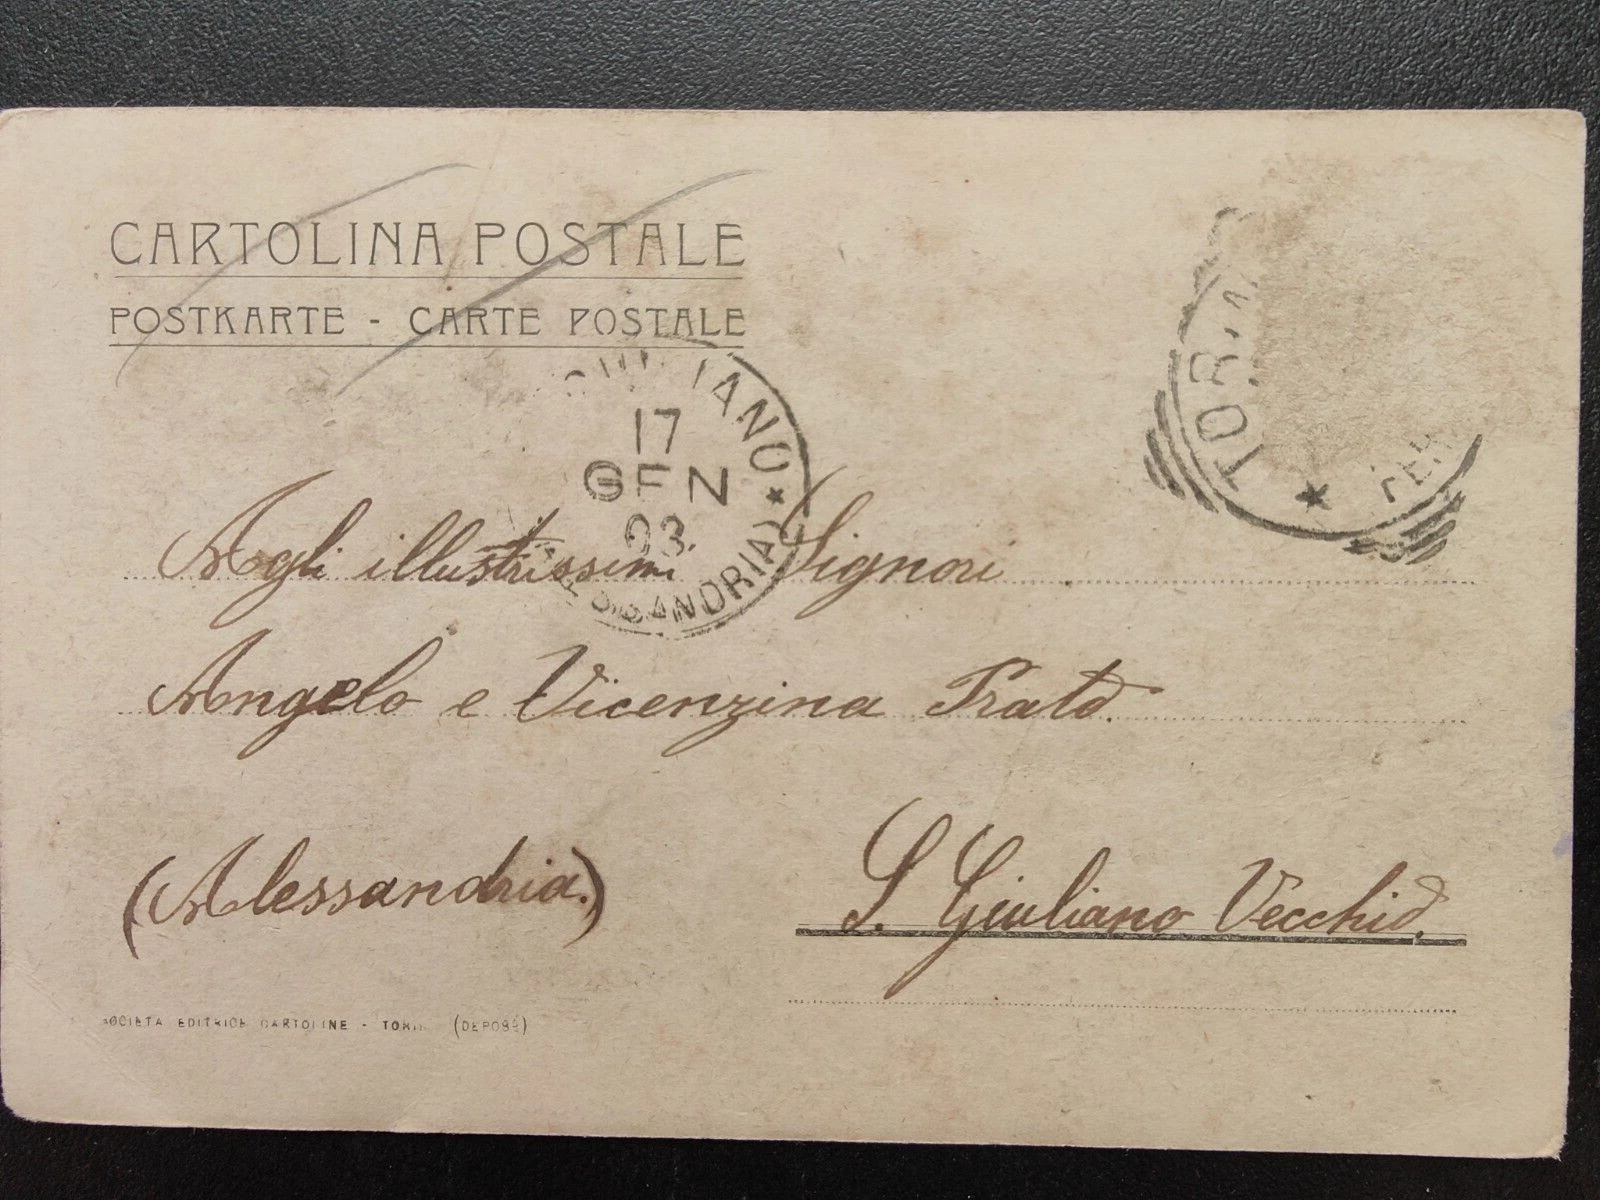 CARTOLINA POSTALE
POSTKARTE - CARTE POSTALE
17
GEN
03
Agli illustrissimi Signori
Angelo e Vicenzina Prato.
(Alessandria.)
S. Giuliano Vecchio.
SOCIETA EDITRICE CARTOLINE - (DEPOSÉ)